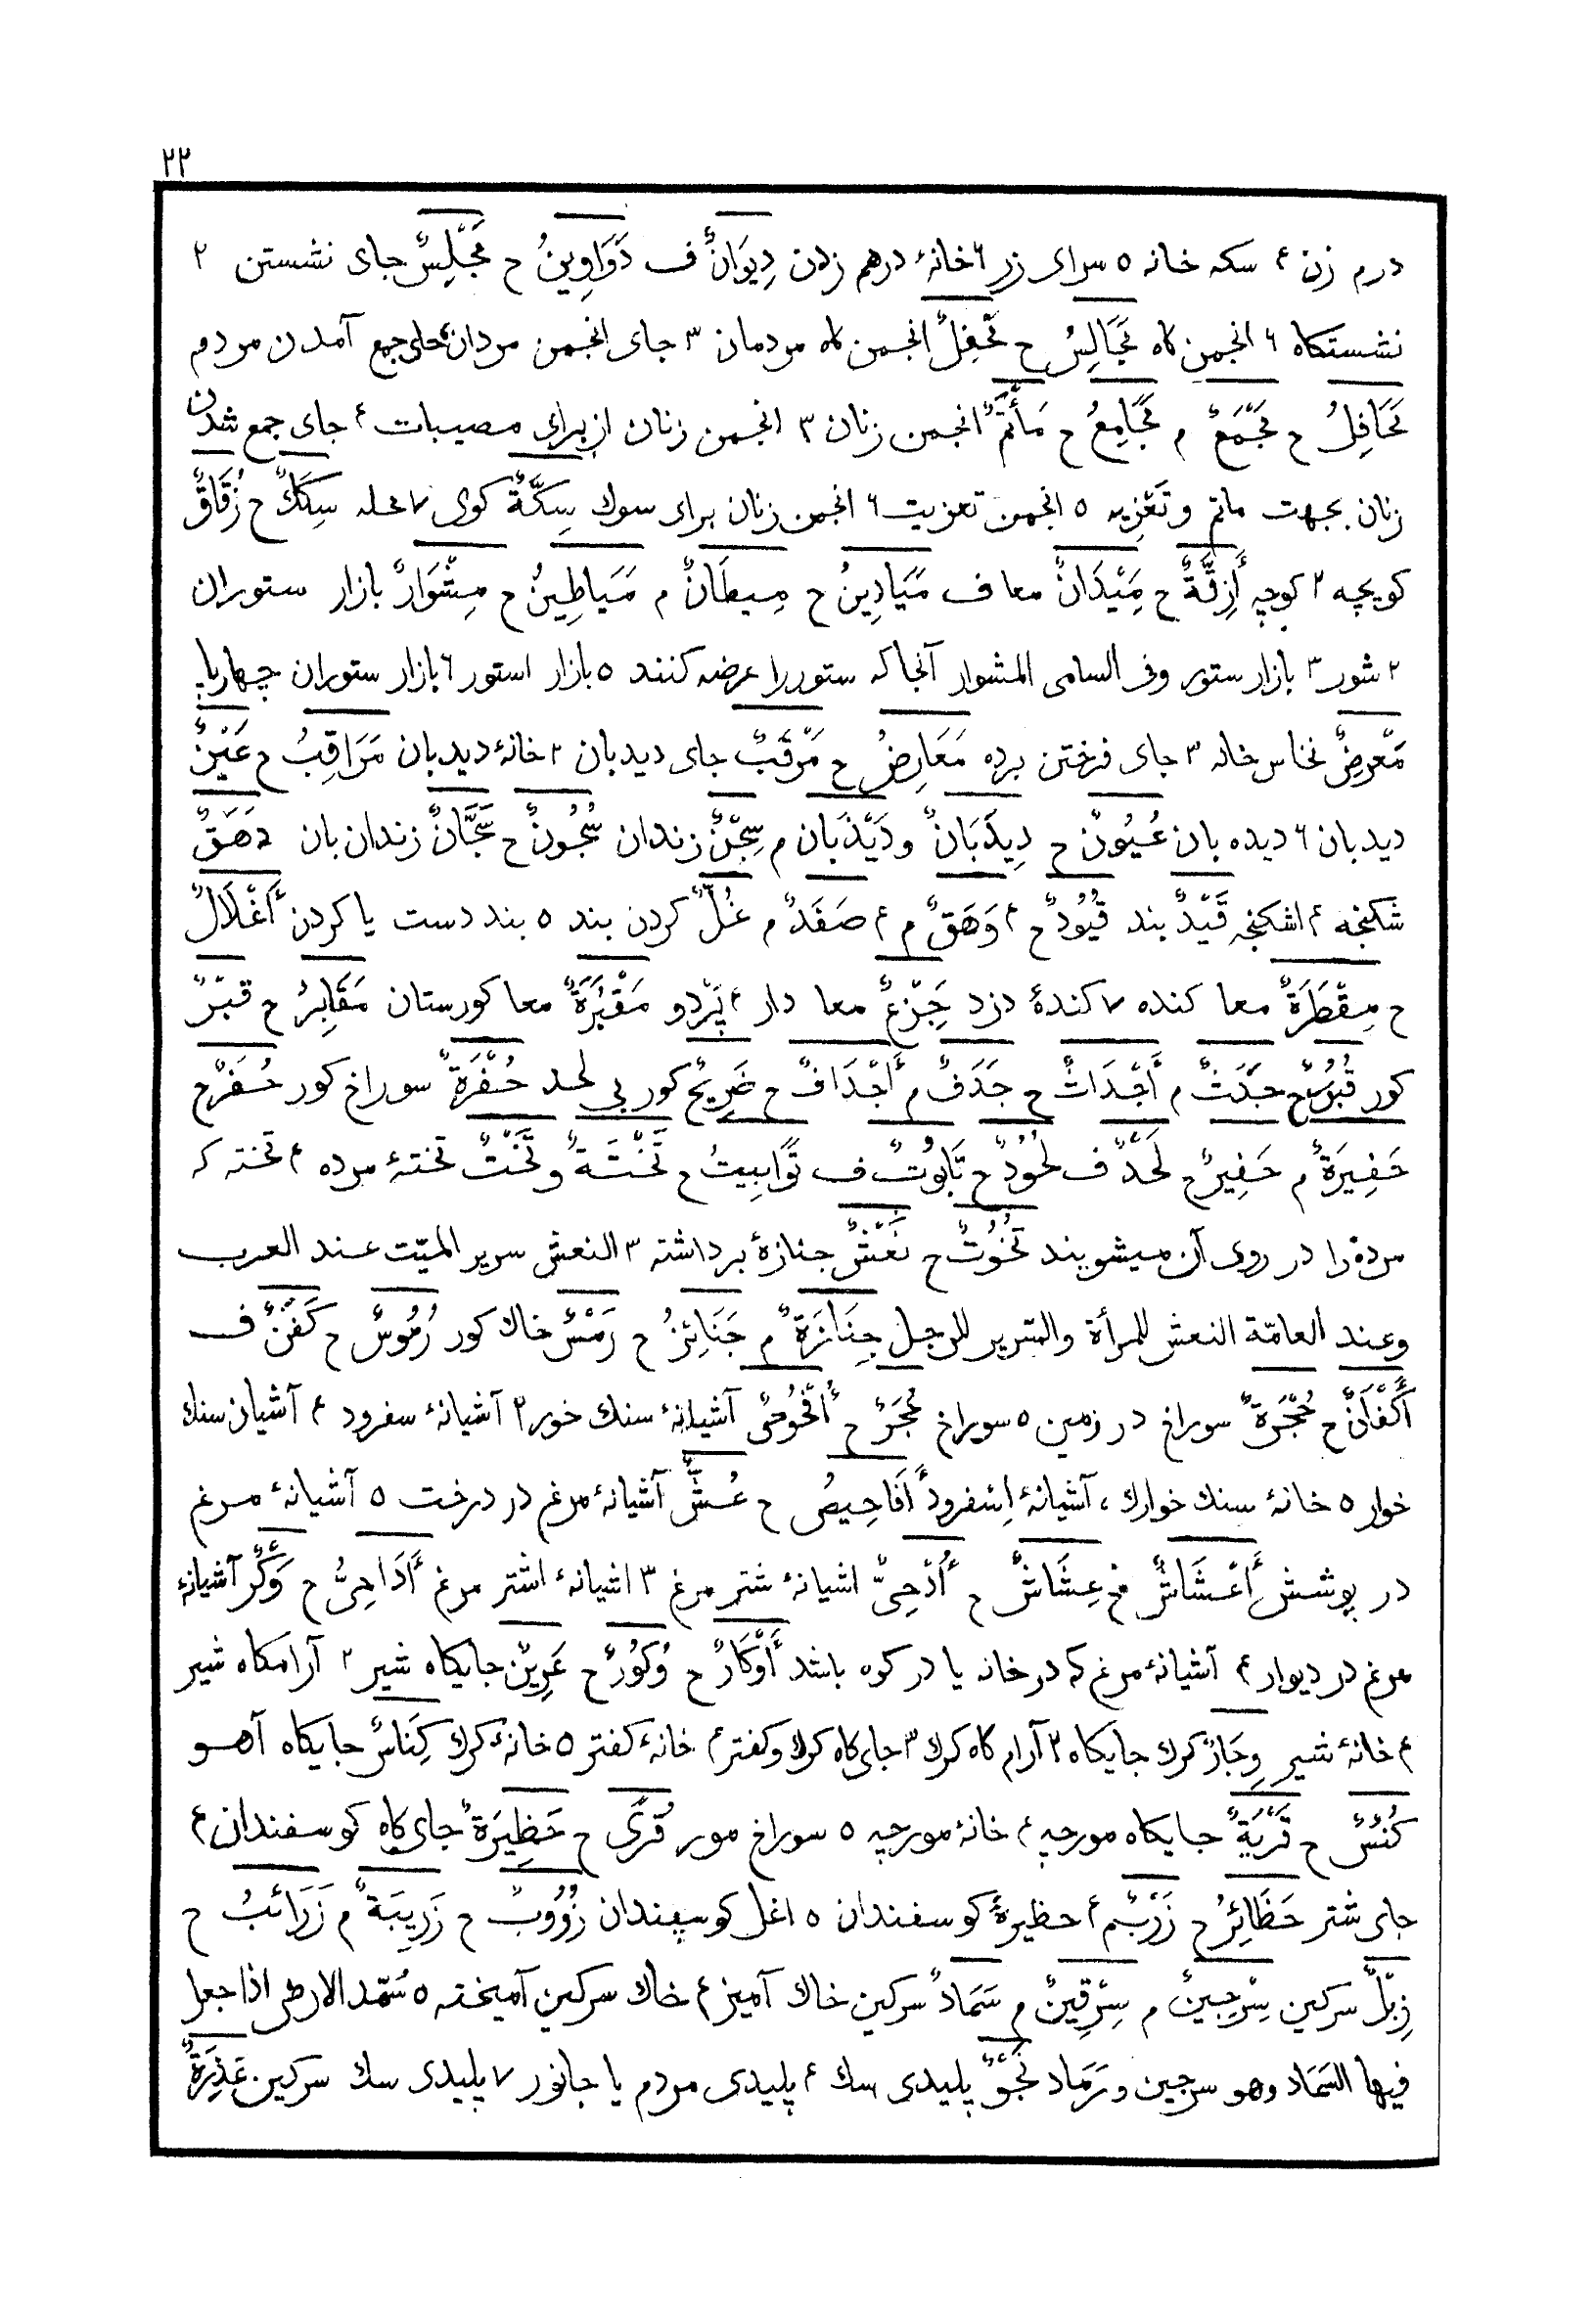 ٢٢
درم زن ۴ سکه خانه ٥ سرای زر ٦ خانهٔ درهم زدن دِيوَانٌ ف دَوَاوِينُ ح مَجْلِسٌ جای نشستن ٢
نشستکاه ٦ انجمن کاه مَجَالِسُ ح مَحْفِلٌ انجمن کاه مردمان ٣ جای انجمن مردان جای جمع آمدن مردم
مَحَافِلُ ح مَجْمَعٌ م مَجَامِعُ ح مَأْتَمٌ انجمن زنان ٣ انجمن زنان از برای مصیبات ۴ جای جمع شدن
زنان بجهت ماتم وتَعْزِیه ٥ انجمن تعزیت ٦ انجمن زنان برای سوك سِكَّةٌ کوی ٧ محله سِكَكٌ ح زُقَاقٌ
کویچه ٢ کوچه أَزِقَّةٌ ح مَيْدَانٌ معا ف مَيَادِينُ ح مِيطَانٌ م مَيَاطِينُ ح مِشْوَارٌ بازار ستوران
٢ شور ٣ بازار ستور وفی السامی المشوار آنجا که ستور را عرضه کنند ٥ بازار استور ٦ بازار ستوران چهارپا
مَعْرِضٌ نخاس خانه ٣ جای فرختن برده مَعَارِضُ ح مَرْقَبٌ جای دیدبان ٢ خانهٔ دیدبان مَرَاقِبُ ح عَيْنٌ
دیدبان ٦ دیده بان عُيُونٌ ح دِيدَبَانٌ ودَيْذَبَان م سِجْنٌ زندان سُجُونٌ ح سَجَّانٌ زندان بان دَهَقٌ
شکنجه ۴ اشکنجه قَيْدٌ بند قُيُودٌ ح ۴ وَهَقٌ م ۴ صَفَدٌ م غُلٌّ کردن بند ٥ بند دست یا کردن أَغْلَالٌ
ح مِقْطَرَةٌ معا کنده ٧ کندهٔ دزد جِزْعٌ معا دار ۴ پَرْدو مَقْبُرَةٌ معا کورستان مَقَابِرُ ح قبْرٌ
کور قُبُورٌ ح جَدَثٌ م أَجْدَاثٌ ح جَدَفٌ م أَجْدَافٌ ح ضَرِيحٌ کور بی لحد حُفْرَةٌ سوراخ کور حُفَرٌ ح
حَفِيرَةٌ م حَفِيرٌ ح لَحْدٌ ف لُحُودٌ ح تَابُوتٌ ف تَوَابِيتُ ح تَخْتَةٌ وتَخْتٌ تختهٔ مرده ۴ تخته که
مرده را در روی آن میشویند تُخُوتٌ ح نَعْشٌ جنازهٔ برداشته ٣ النعش سریر المیّت عند العرب
وعند العامّة النعش للمرأة والسریر للرجل جِنَازَةٌ م جَنَائِزُ ح رَمْسٌ خاك کور رُمُوسٌ ح كَفَنٌ ف
أَكْفَانٌ ح جُحْرَةٌ سوراخ در زمین ٥ سوراخ جُحَرٌ ح أُفْحُوصٌ آشیانهٔ سنك خور ٢ آشیانهٔ سفرود ۴ آشیان سنك
خوار ٥ خانهٔ سنك خوارك ، آشیانهٔ اِسْفرود أَفَاحِيصُ ح عُشٌّ آشیانهٔ مرغ در درخت ٥ آشیانهٔ مرغ
در پوشش أَعْشَاشٌ ح عِشَاشٌ ح أُدْحِيٌّ اشیانهٔ شتر مرغ ٣ اشیانهٔ اشتر مرغ أَدَاحِيُّ ح وَكْرٌ آشیانهٔ
مرغ در دیوار ۴ آشیانهٔ مرغ که در خانه یا در کوه باشد أَوْكَارٌ ح وُكُورٌ ح عَرِينٌ جایکاه شیر ٢ آرامکاه شیر
۴ خانهٔ شیر وِجَارٌ کرك جایکاه ٢ آرام کاه کرك ٣ جای کاه کرك وکفتر ۴ خانهٔ کفتر ٥ خانهٔ کرك كِنَاسٌ جایکاه آهو
كُنُسٌ ح قَرْيَةٌ جایکاه مورچه ۴ خانهٔ مورچه ٥ سوراخ مور قُرًى ح حَظِيرَةٌ جای کاه کوسفندان ۴
جای شتر حَظَائِرُ ح زَرْبٌ م ۴ حظیرهٔ کوسفندان ٥ اغل کوسپندان زُرُوبٌ ح زَرِيبَةٌ م زَرَائِبُ ح
زِبْلٌ سرکین سِرْجِينٌ م سِرْقِينٌ م سَمَادٌ سرکین خاك آمیز ۴ خاك سرکین آمیخته ٥ سَمّد الارض اذا جعل
فیها السَمَاد وهو سرجین ورَمَاد نَجْوٌ پلیدی سك ۴ پلیدی مردم یا جانور ٧ پلیدی سك سرکین عَذِرَةٌ